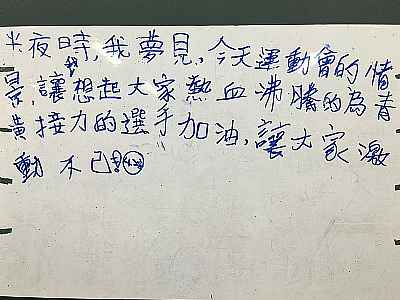 半夜時,我夢見,今天運動會的情
景,讓我想起大家熱血沸騰的為青
黃接力的選手加油,讓大家激
動不已!